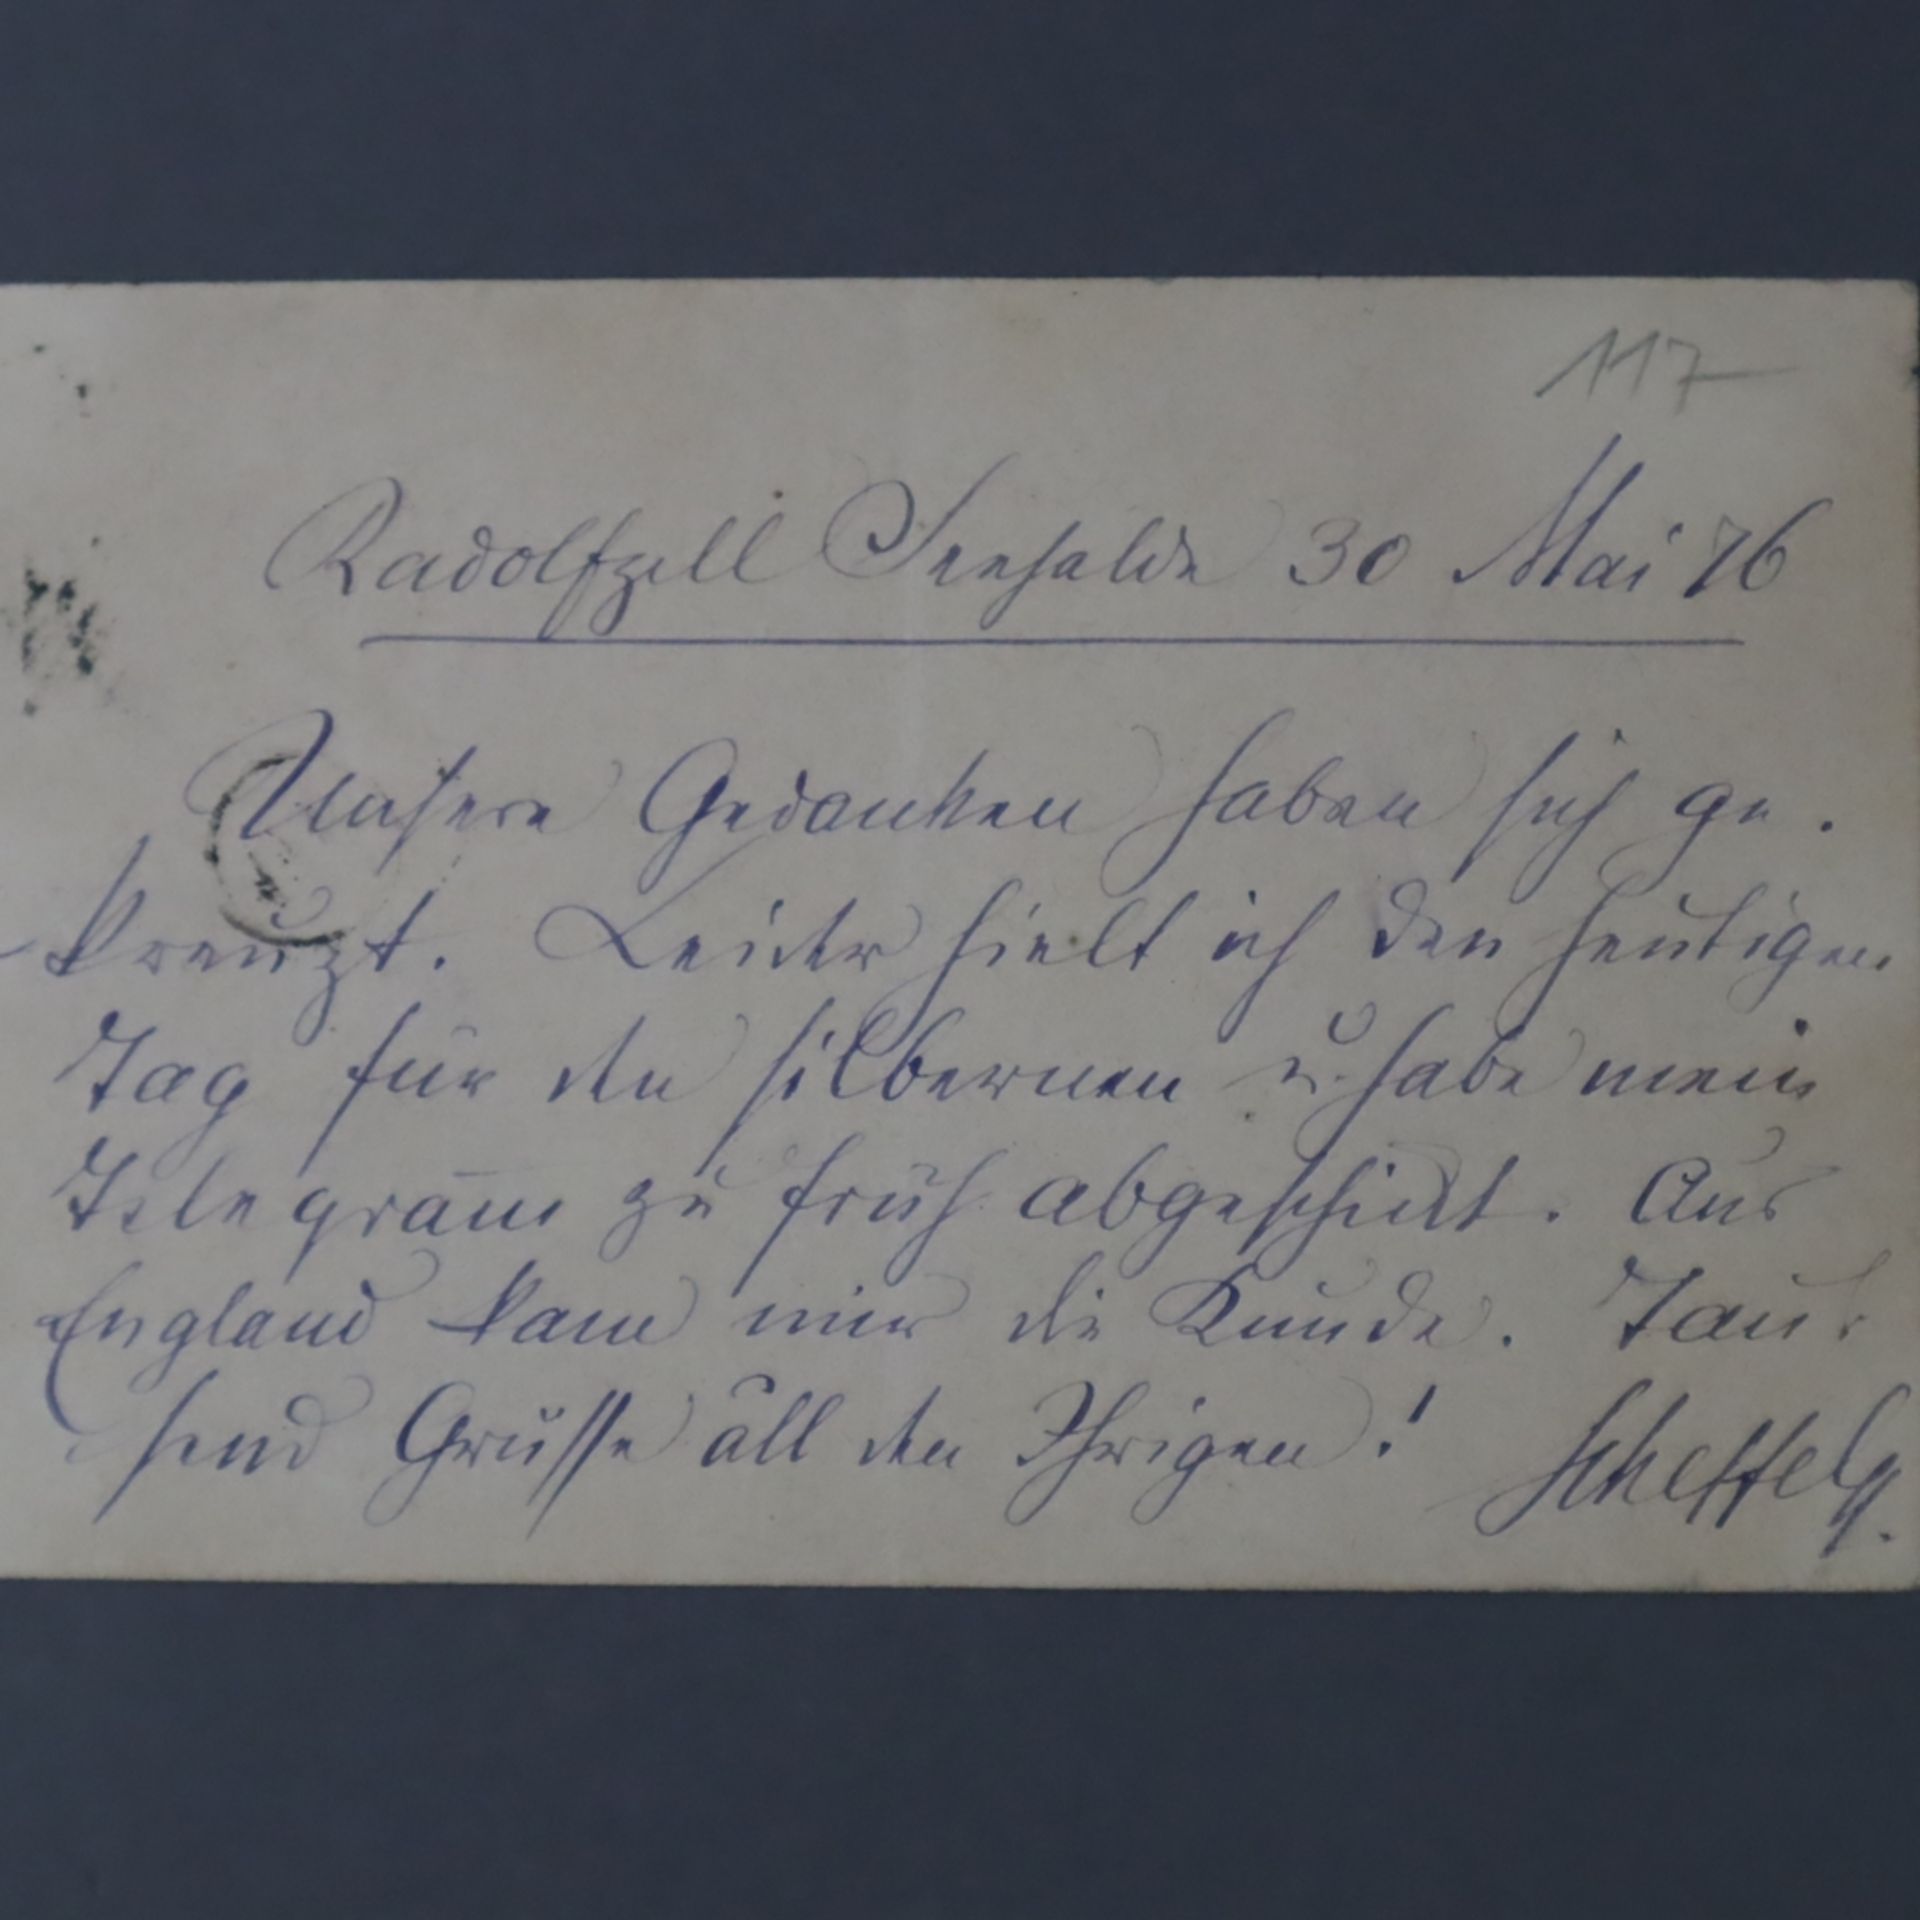 117
Radolfzell Seehalde 30 Mai 76
Unsere Gedanken haben sich ge.
kreuzt. Leider hielt ich den heutigen
Tag für den silbernen u. habe mein
Telegram̅ zu früh abgeschickt. Aus
England kam mir die Kunde. Tau
send Grüsse all den Ihrigen!
Scheffel